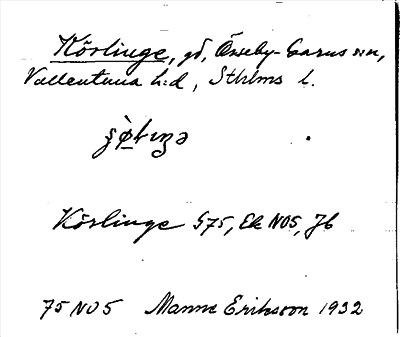 Körlinge, gd, Össeby-Garns sn,
Vallentuna h:d, Sthlms l.
Körlinge G75, Ek NO5, Jb
75 NO 5 Manne Eriksson 1932